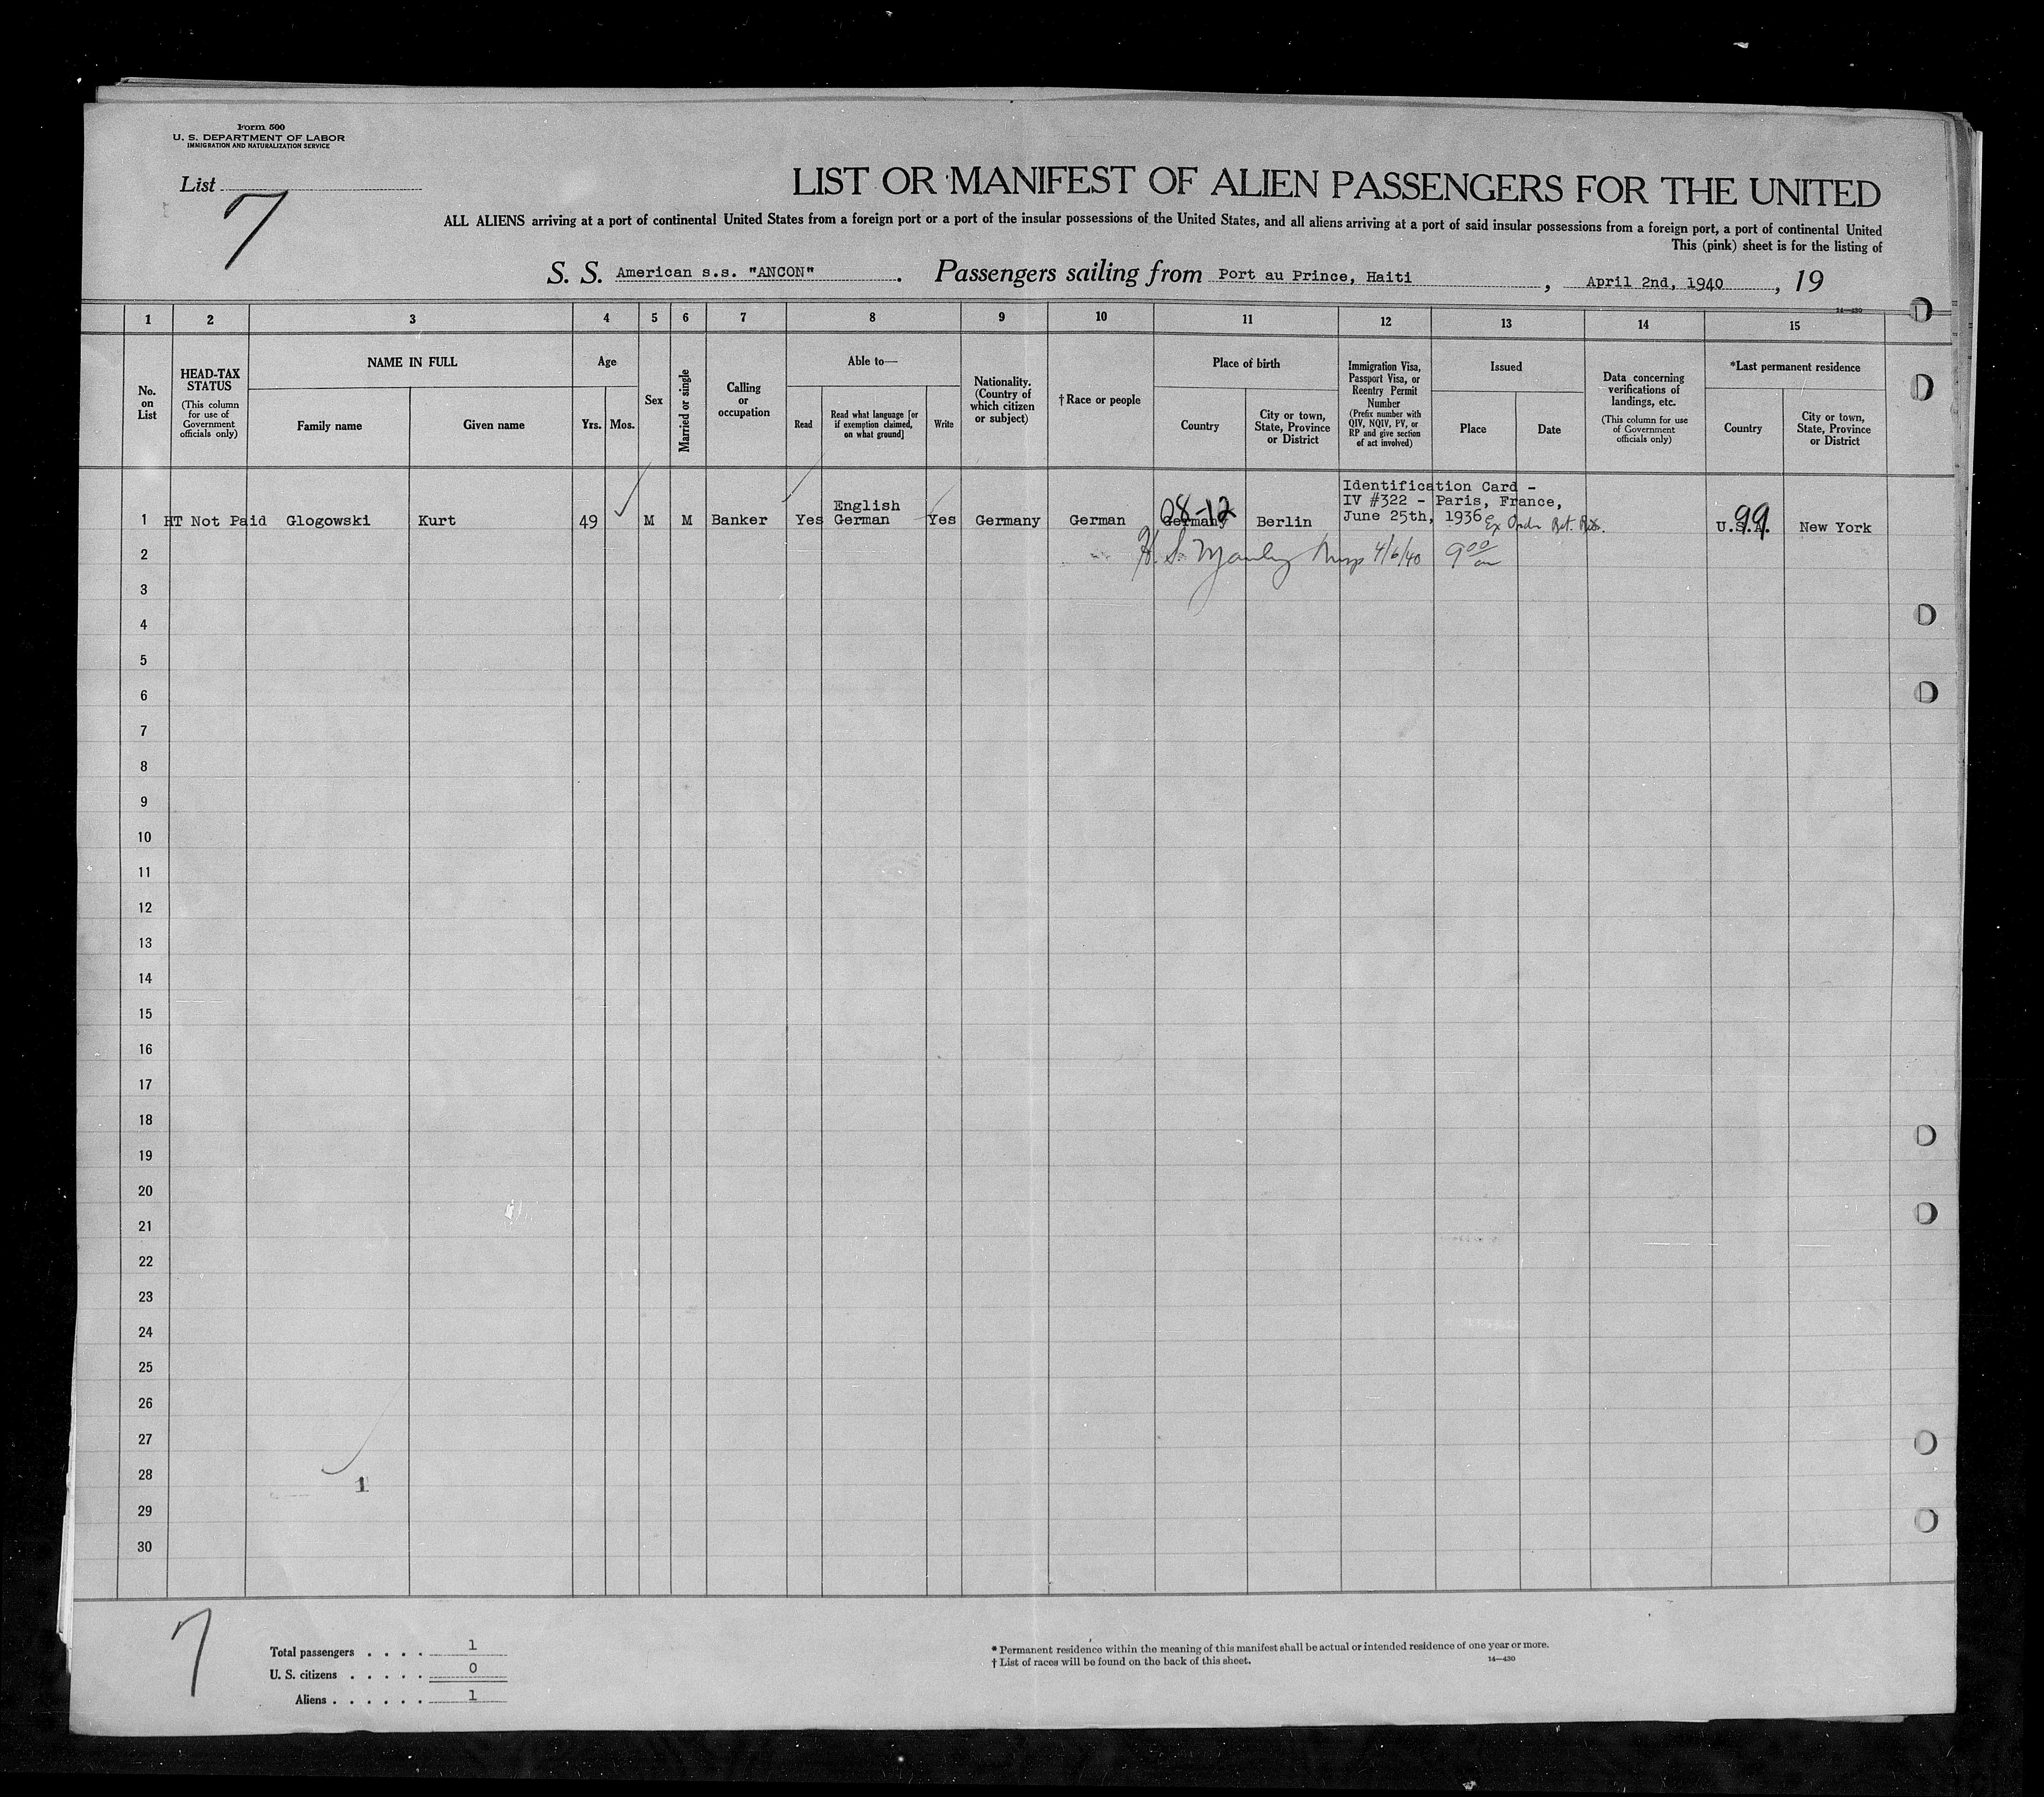 Form 500
U. S. DEPARTMENT OF LABOR
IMMIGRATION AND NATURALIZATION SERVICE
List
7
LIST OR MANIFEST OF ALIEN PASSENGERS FOR THE UNITED
ALL ALIENS arriving at a port of continental United States from a foreign port or a port of the insular possessions of the United States, and all aliens arriving at a port of said insular possessions from a foreign port, a port of continental United
This (pink) sheet is for the listing of
S. S. American s.s. "ANCON" . Passengers sailing from Port au Prince, Haiti , April 2nd, 1940 , 19
14—430
1 2 3 4 5 6 7 8 9 10 11 12 13 14 15
No. on List
HEAD-TAX STATUS
(This column for use of Government officials only)
NAME IN FULL
Family name
Given name
Age
Yrs.
Mos.
Sex
Married or single
Calling or occupation
Able to—
Read
Read what language [or if exemption claimed, on what ground]
Write
Nationality. (Country of which citizen or subject)
† Race or people
Place of birth
Country
City or town, State, Province or District
Immigration Visa, Passport Visa, or Reentry Permit Number
(Prefix number with QIV, NQIV, PV, or RP and give section of act involved)
Issued
Place
Date
Data concerning verifications of landings, etc.
(This column for use of Government officials only)
*Last permanent residence
Country
City or town, State, Province or District
Identification Card -
IV #322 - Paris, France,
June 25th, 1936
English
1 HT Not Paid Glogowski Kurt 49 M M Banker Yes German Yes Germany German Germany Berlin U.S.A. New York
08-12
99
Ex Order
2 H. S. 4/6/40 9 00
3
4
5
6
7
8
9
10
11
12
13
14
15
16
17
18
19
20
21
22
23
24
25
26
27
28
1
29
30
7
Total passengers . . . . 1
U. S. citizens . . . . . 0
Aliens . . . . . . 1
* Permanent residence within the meaning of this manifest shall be actual or intended residence of one year or more.
† List of races will be found on the back of this sheet.
14—430